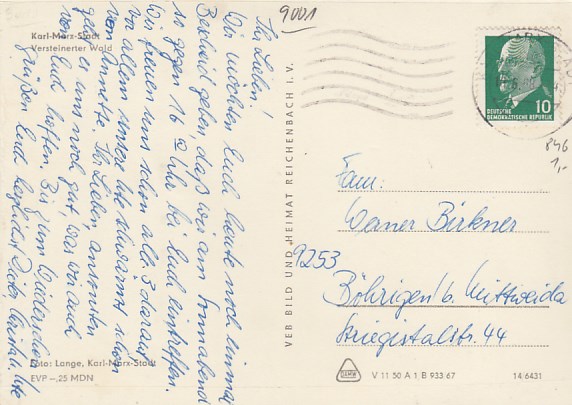 Karl-Marx-Stadt
Versteinerter Wald
9001
Ihr Lieben!
Wir möchten Euch heute noch einmal
Bescheid geben, daß wir am Sonnabend
so gegen 16 Uhr bei Euch eintreffen.
Wir freuen uns schon alle 3 darauf
vor allem unsere Ute schwärmt schon
von Annette. Ihr Lieben, ansonsten
geht es uns noch gut, was wir auch
von Euch hoffen. Bis zum Wiedersehen
grüßen Euch herzlichst Dieter, Christel, Ute
Foto: Lange, Karl-Marx-Stadt
EVP -,25 MDN
VEB BILD UND HEIMAT REICHENBACH I. V.
10
DEUTSCHE
DEMOKRATISCHE REPUBLIK
846
1,-
Fam:
Werner Birkner
9253
Böhrigen b. Mittweida
Striegistalstr. 44
V 11 50 A 1 B 933 67
14 6431